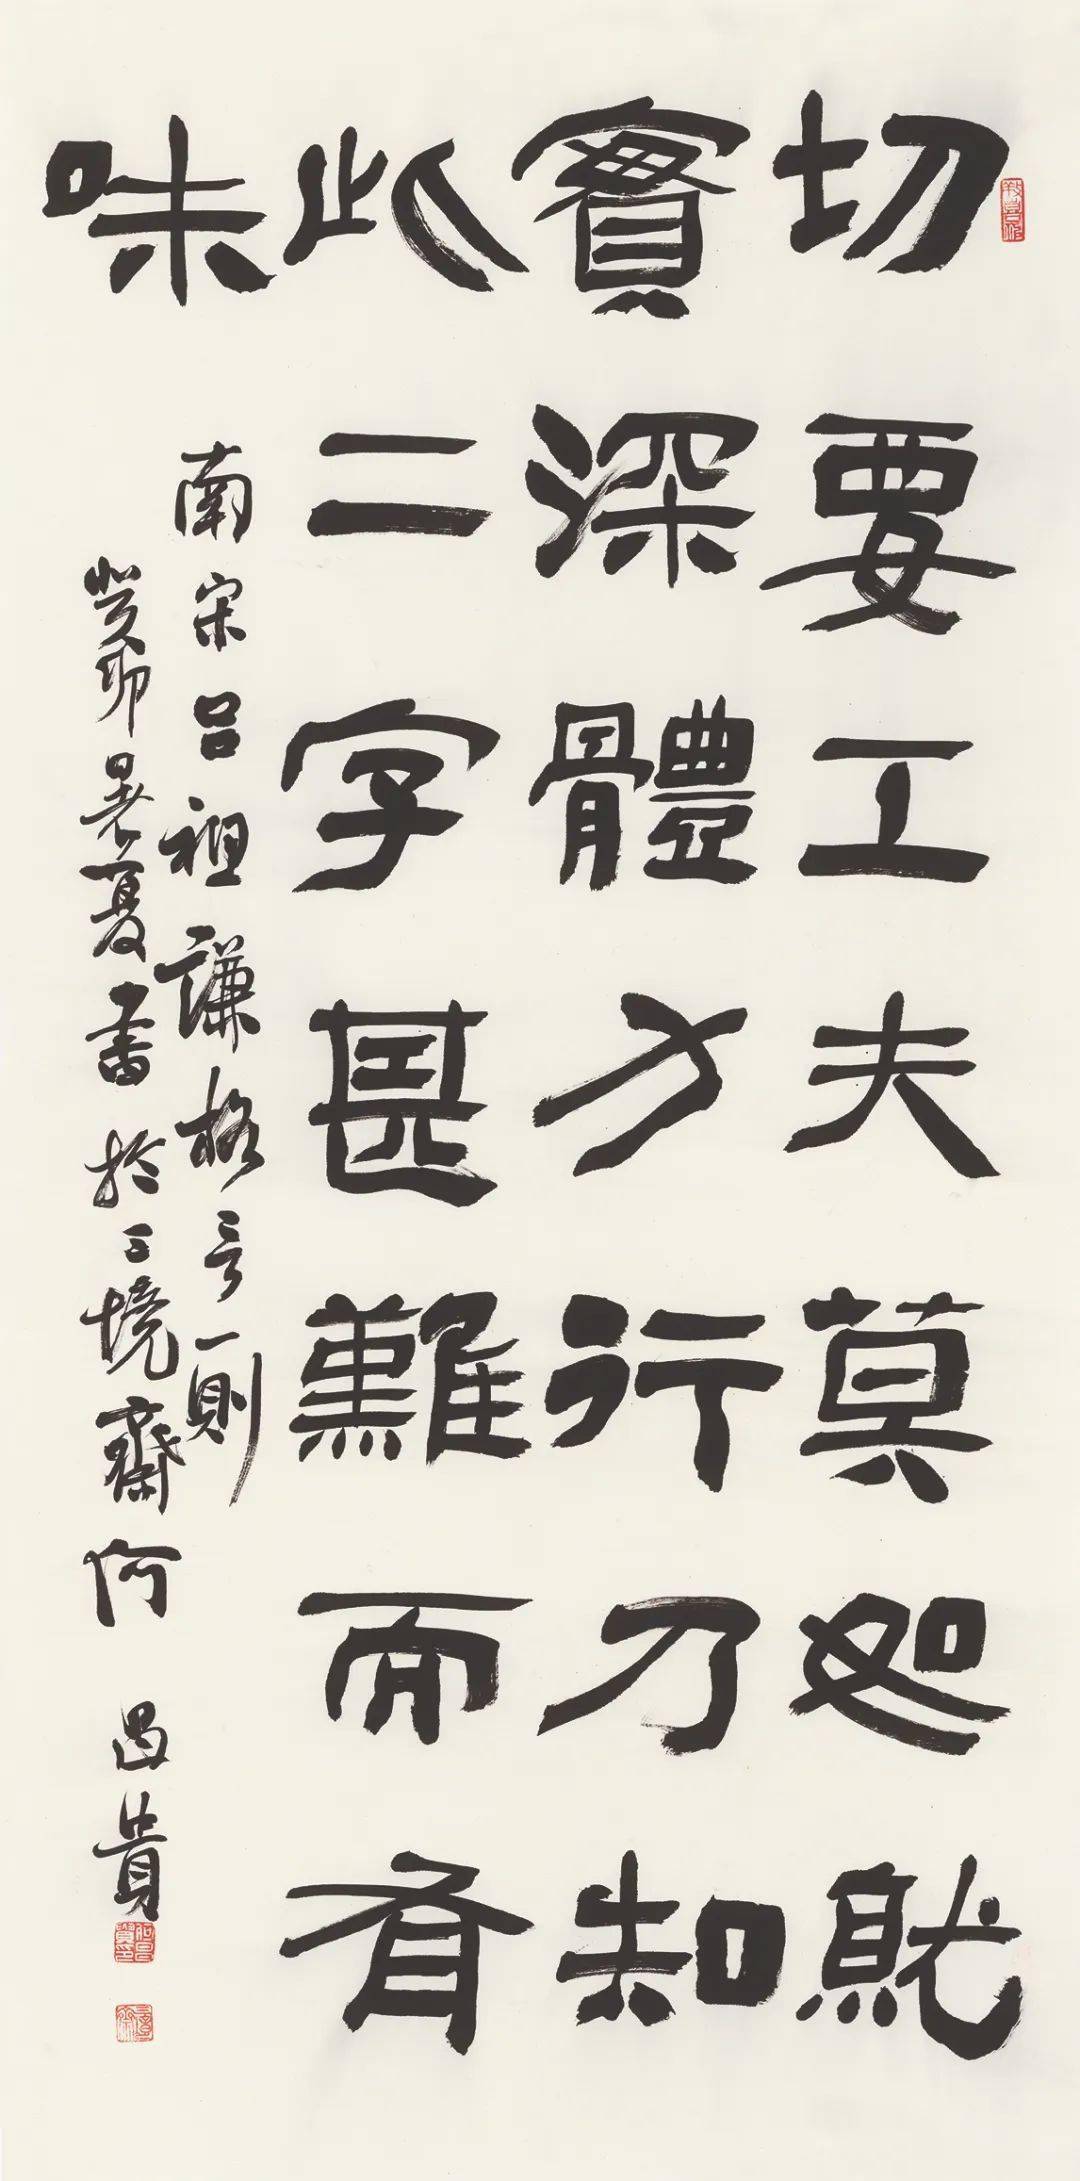 切要工夫莫如就
實深體力行乃知
此二字甚難而有
味
南宋呂祖謙格言一則
癸卯暑夏書於三境齋何昌貴